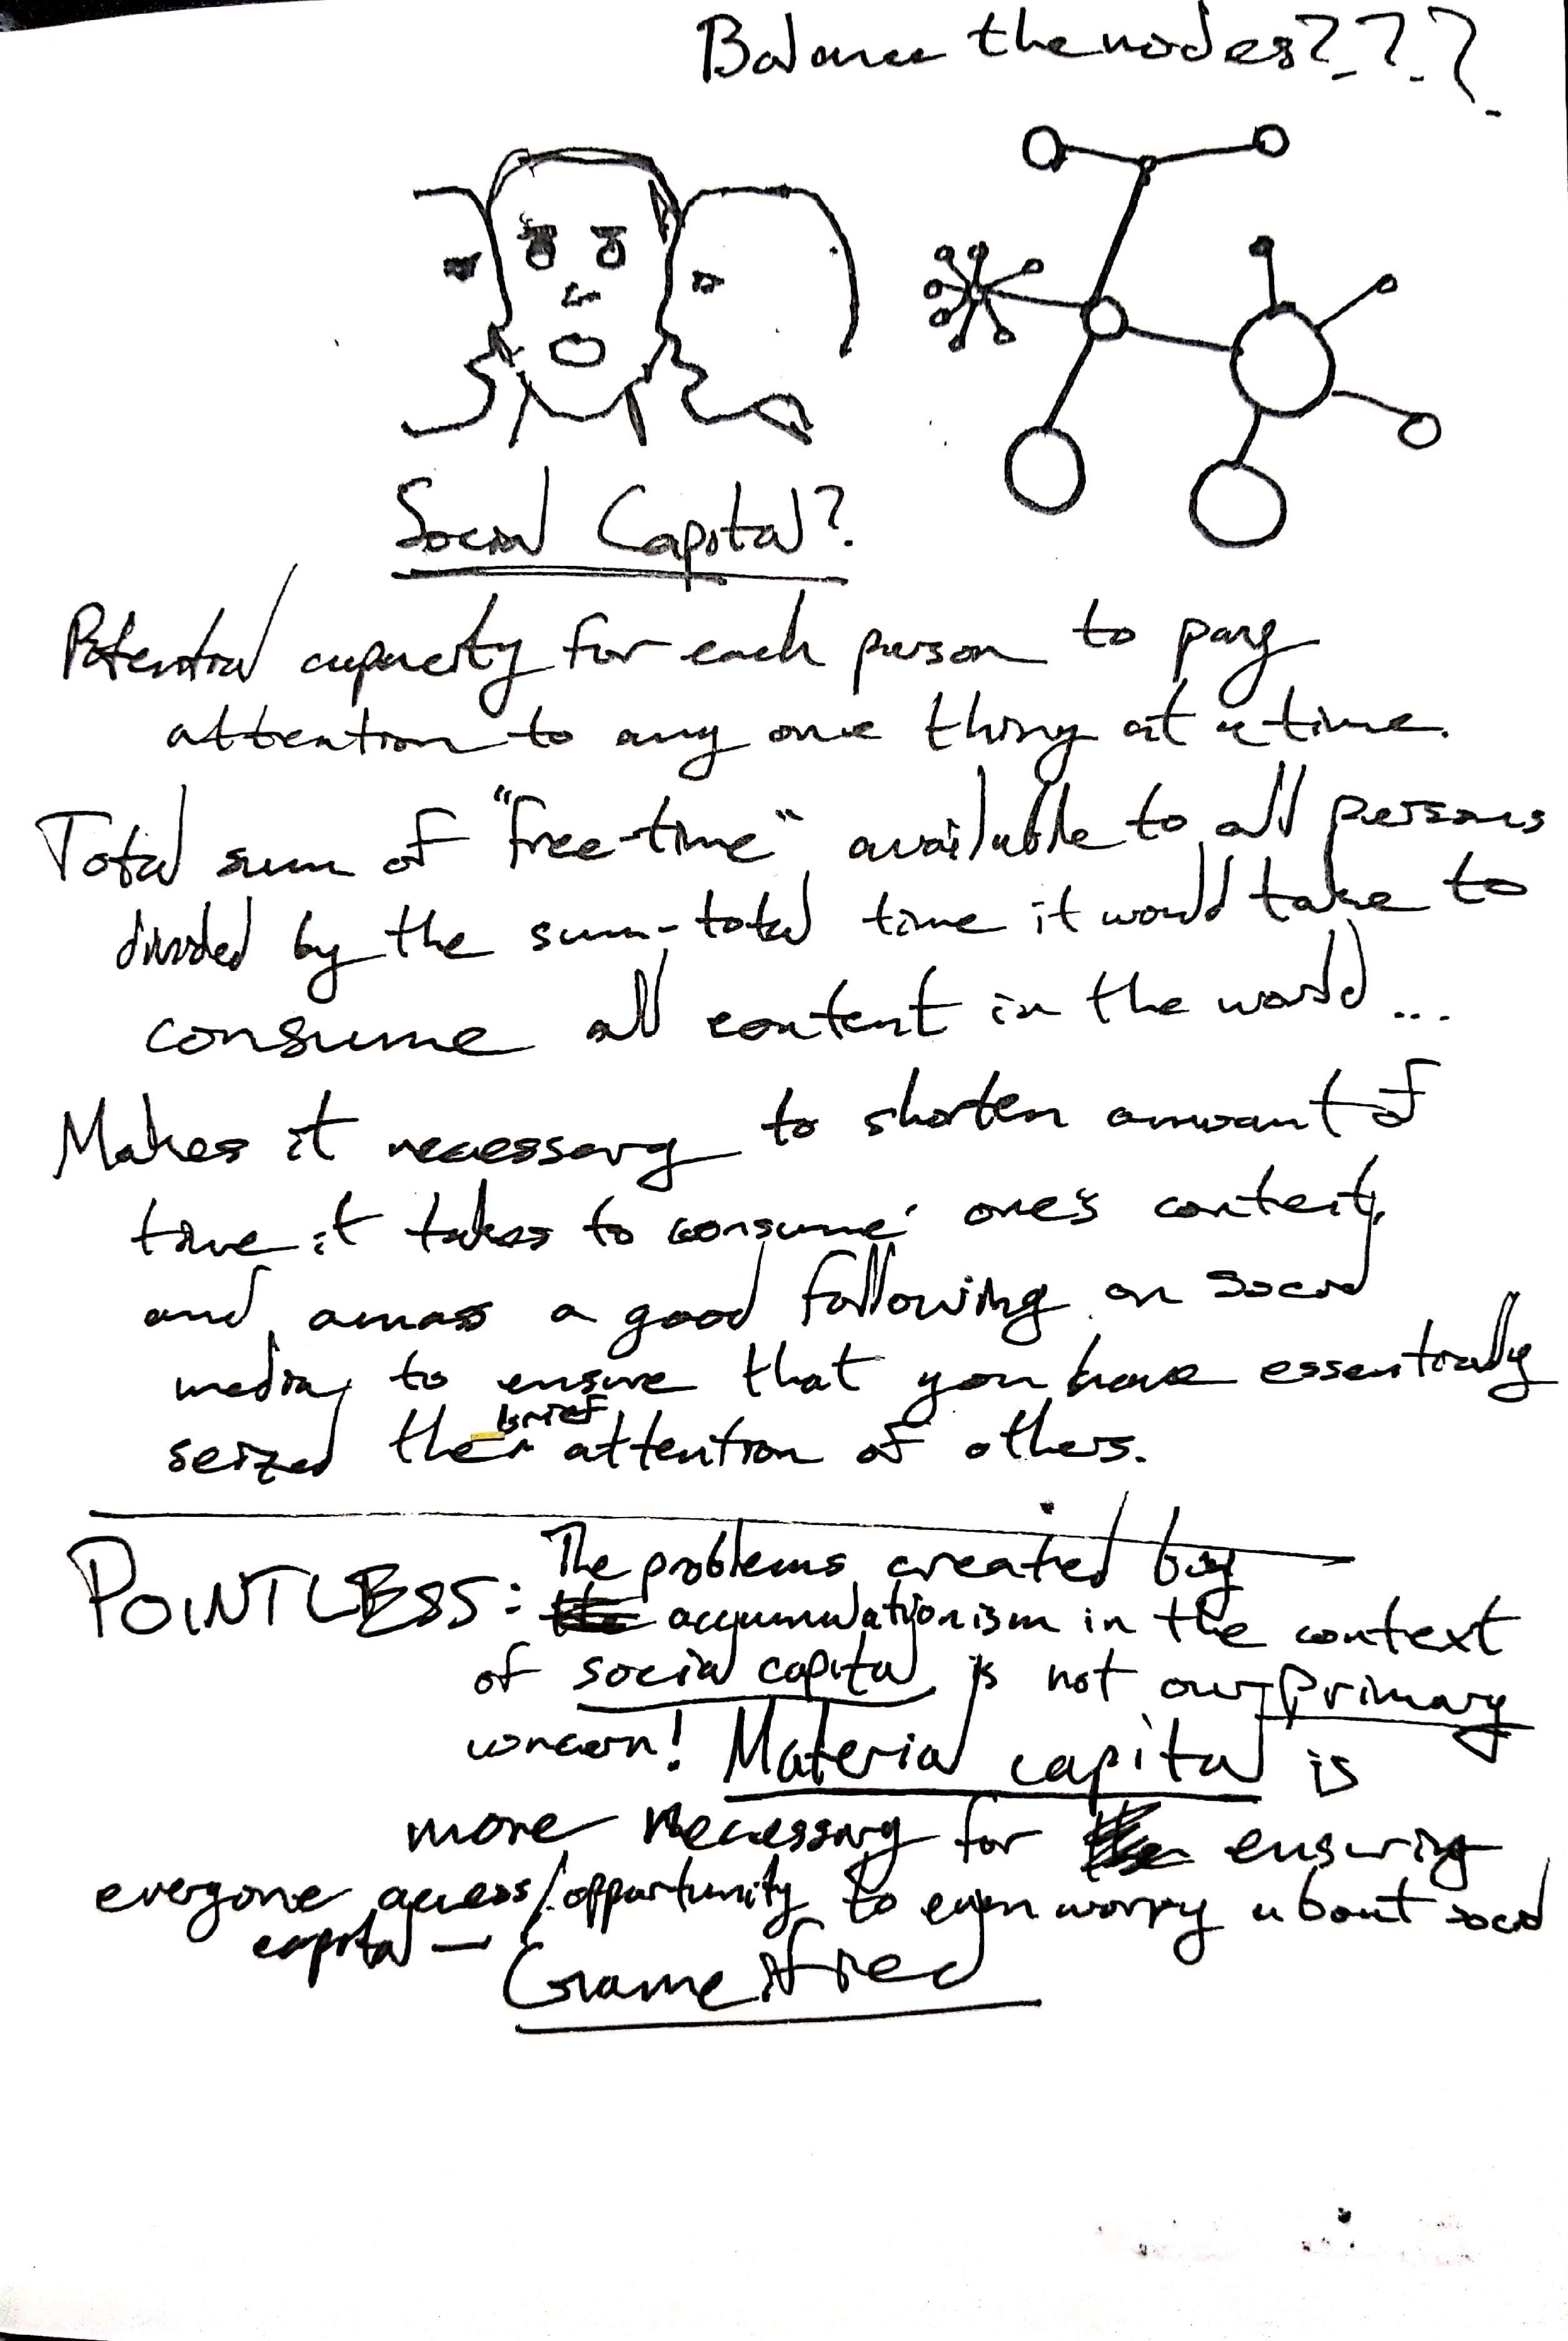 Balance the nodes???
Social Capital?
Potential capacity for each person to pay
attention to any one thing at a time.
Total sum of "free-time" available to all persons
divided by the sum-total time it would take to
consume all content in the world...
Makes it necessary to shorten amount of
time it takes to consume one's content,
and amass a good following on social
media, to ensure that you have essentially
seized the brief attention of others.
POINTLESS: The problems created by
accumulationism in the context
of social capital is not our primary
concern! Material capital is
more necessary for ensuring
everyone access/opportunity to even worry about social
capital —
Gameified